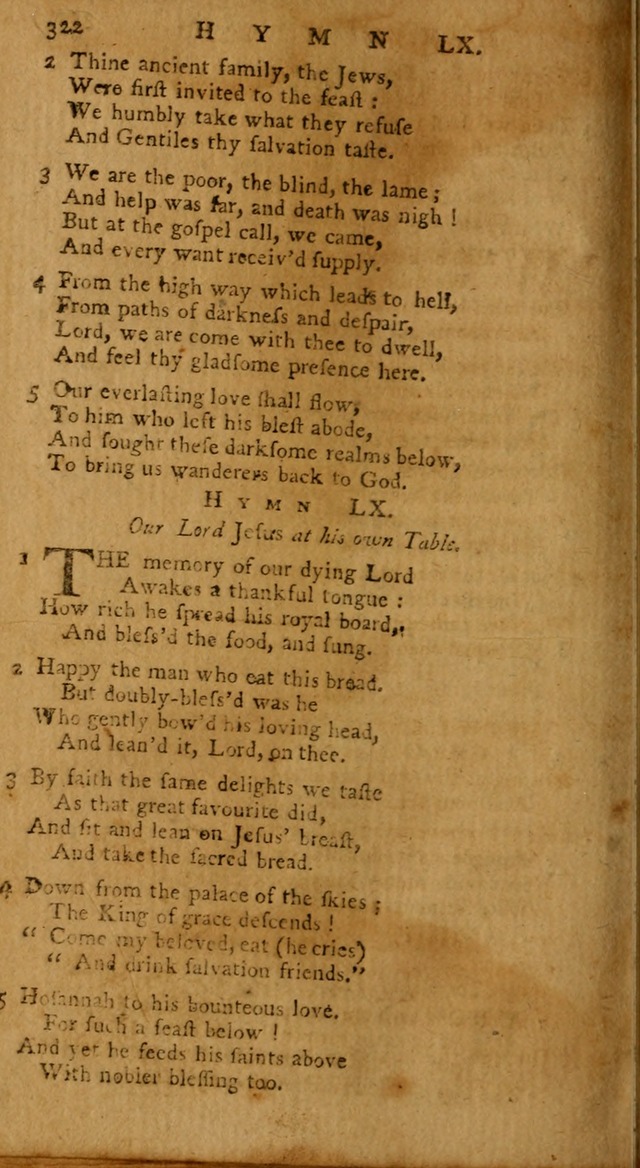 322 HYMN LX.
2 Thine ancient family, the Jews,
Were firſt invited to the feaſt :
We humbly take what they refuſe
And Gentiles thy ſalvation taſte.
3 We are the poor, the blind, the lame ;
And help was far, and death was nigh !
But at the goſpel call, we came,
And every want receiv'd ſupply.
4 From the high way which leads to hell,
From paths of darkneſs and deſpair,
Lord, we are come with thee to dwell,
And feel thy gladſome preſence here.
5 Our everlaſting love ſhall flow,
To him who left his bleſt abode,
And fought theſe darkſome realms below,
To bring us wanderers back to God.
HYMN LX.
Our Lord Jeſus at his own Table.
1 THE memory of our dying Lord
Awakes a thankful tongue :
How rich he ſpread his royal board,
And bleſs'd the food, and ſung.
2 Happy the man who eat this bread.
But doubly-bleſs'd was he
Who gently bow'd his loving head,
And lean'd it, Lord, on thee.
3 By faith the ſame delights we taſte
As that great favourite did,
And ſit and lean on Jeſus' breaſt,
And take the ſacred bread.
4 Down from the palace of the ſkies :
The King of grace deſcends !
“ Come my beloved, eat (he cries)
“ And drink ſalvation friends.”
5 Hoſannah to his bounteous love.
For ſuch a feaſt below !
And yet he feeds his ſaints above
With nobler bleſſing too.